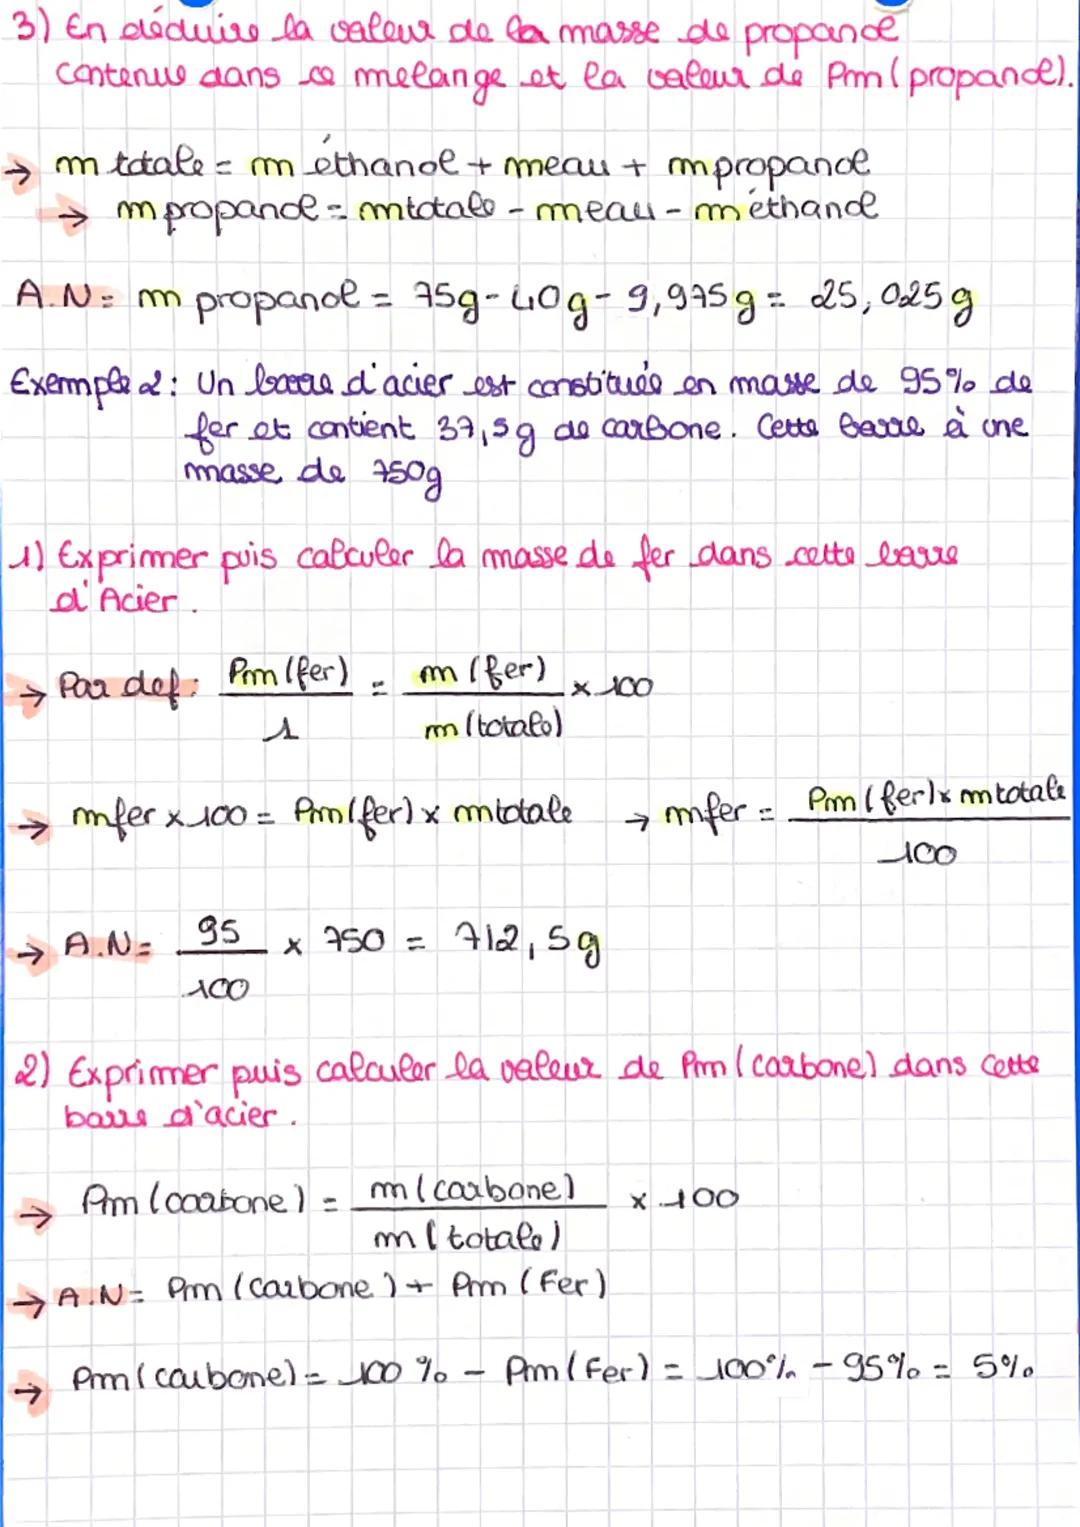 3) En déduire la valeur de la masse de propanol
contenue dans ce melange et la valeur de Pm (propanol).
→ m totale = m éthanol + meau + m propanol
→ m propanol = mtotale - meau - m éthanol
A.N = m propanol = 75g - 40g - 9,975g = 25,025g
Exemple 2 : Un barre d'acier est constituée en masse de 95% de
fer et contient 37,5g de carbone. Cette barre à une
masse de 750g
1) Exprimer puis calculer la masse de fer dans cette barre
d'Acier.
→ Par def : Pm (fer) / 1 = m (fer) / m (totale) × 100
→ mfer × 100 = Pm (fer) × mtotale → mfer = Pm (fer) × mtotale / 100
→ A.N = 95 / 100 × 750 = 712,5g
2) Exprimer puis calculer la valeur de Pm (carbone) dans cette
barre d'acier.
→ Pm (carbone) = m (carbone) / m (totale) × 100
→ A.N = Pm (carbone) + Pm (Fer)
→ Pm (carbone) = 100 % - Pm (Fer) = 100% - 95% = 5%